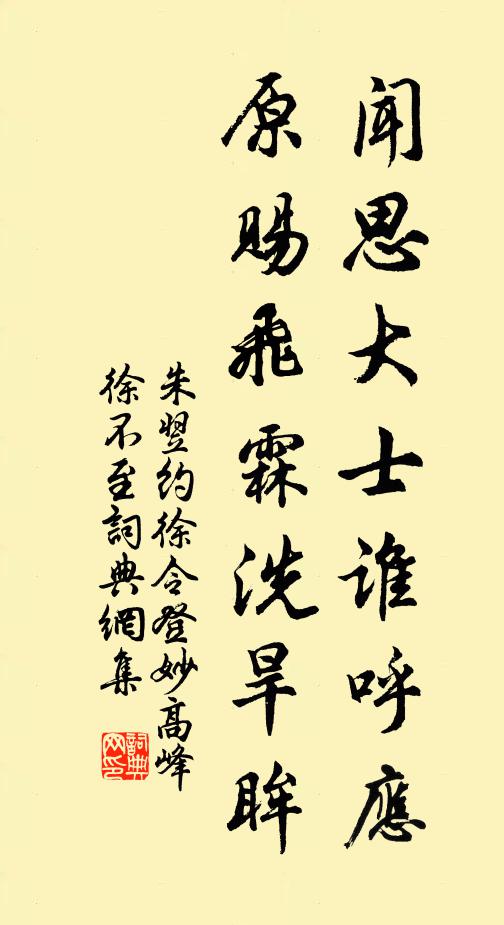 闻思大士谁呼應
原赐飛霖洗旱眸
朱翌约徐令登妙高峰
徐不至詞典網集
詞典
网印